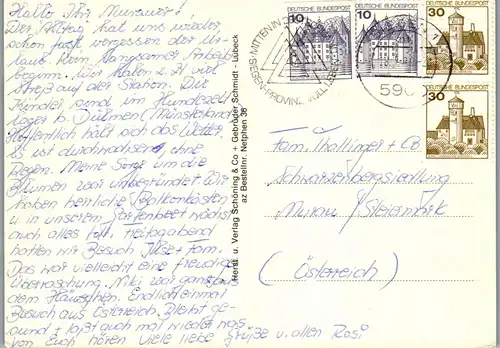 Hallo Ihr Murauer!
Der Alltag hat uns wieder,
schon fast vergessen der Ur-
laub. Kein langsamer Arbeits-
beginn. Wir haben z. Zt viel
Streß auf der Station. Die
Kinder sind im Hundezelt-
lager b. Dülmen (Münsterland)
Hoffentlich hält sich das Wetter,
es ist durchwachsen, ohne
Regen. Meine Sorge um die
Blumen war unbegründet. Wir
haben herrliche Balkonkästen
u in unserem Gartenbeet wächst
auch alles toll. Freitagabend
hatten wir Besuch Ilse + Fam.
Das war vielleicht eine freudige
Überraschung. war ganz
dem Häuschen. Endlich einmal
Besuch aus Österreich. Bleibt ge-
sund + laßt auch mal wieder was
von Euch hören Viele liebe Grüße u. allen Rosi
Herst. u. Verlag Schöning & Co + Gebrüder Schmidt - Lübeck
az Bestellnr. Netphen 36
DEUTSCHE BUNDESPOST
10
DEUTSCHE BUNDESPOST
10
DEUTSCHE BUNDESPOST
30
DEUTSCHE BUNDESPOST
30
SIEGEN · MITTEN IN
PROVINZ VOLL LEBEN
1
590
Fam. Thallinger + Co
Schwarzenbergsiedlung
Murau / Steiermark
(Österreich)